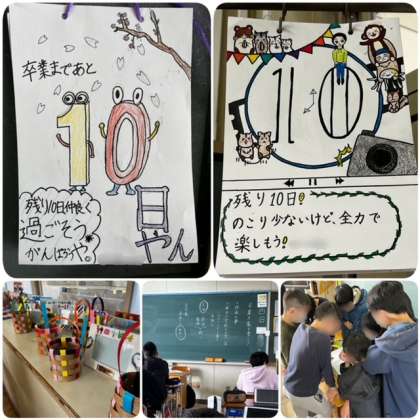 卒業まであと
10
日
やん
残り10日仲良く
過ごそう
がんばろうや。
10
残り10日!
のこり少ないけど、全力で
楽しもう!